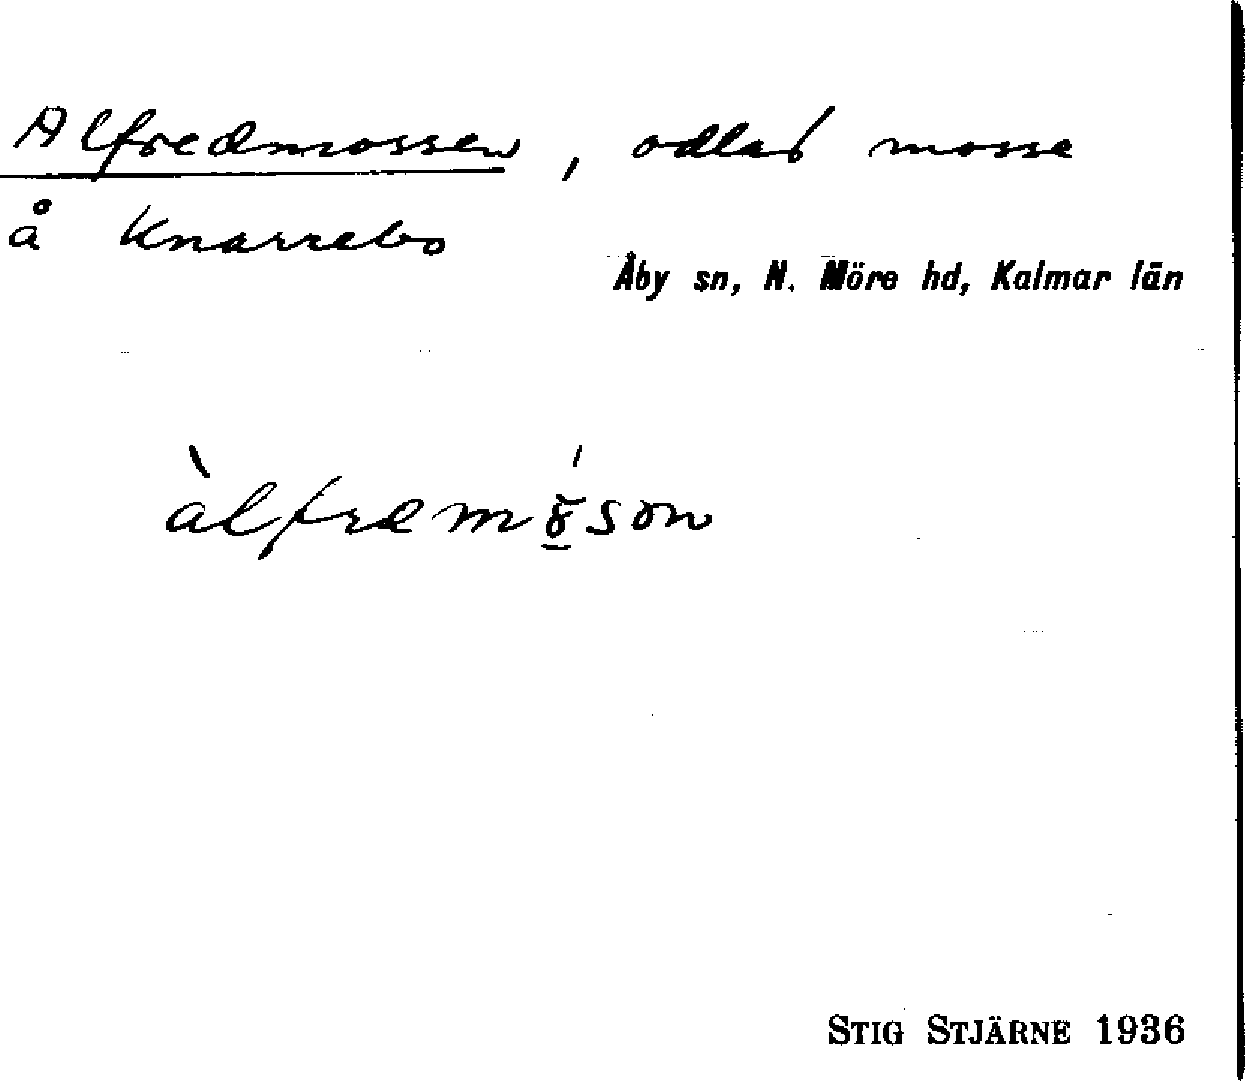 Alfredmossen, odlad mosse
å Knarrebo
Åby sn, N. Möre hd, Kalmar län
STIG STJÄRNE 1936